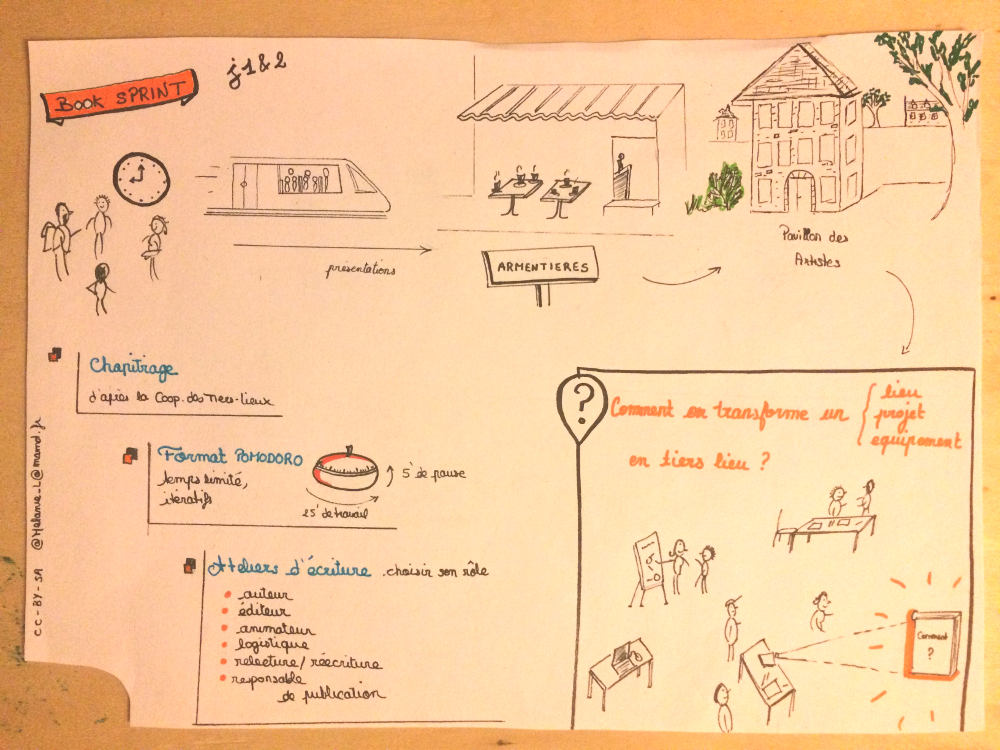 BOOK SPRINT
j1&2
présentations
ARMENTIERES
Pavillon des
Artistes
Chapitrage
d'après la Coop. des Tiers-Lieux
Format POMODORO
temps limité,
itératifs
5' de pause
25' de travail
Ateliers d'écriture . choisir son rôle
auteur
éditeur
animateur
logistique
relecture / réécriture
responsable
de publication
?
Comment on transforme un
lieu
projet
equipement
en tiers lieu ?
Comment
?
CC-BY-SA @Melanie_L@mamd.fr